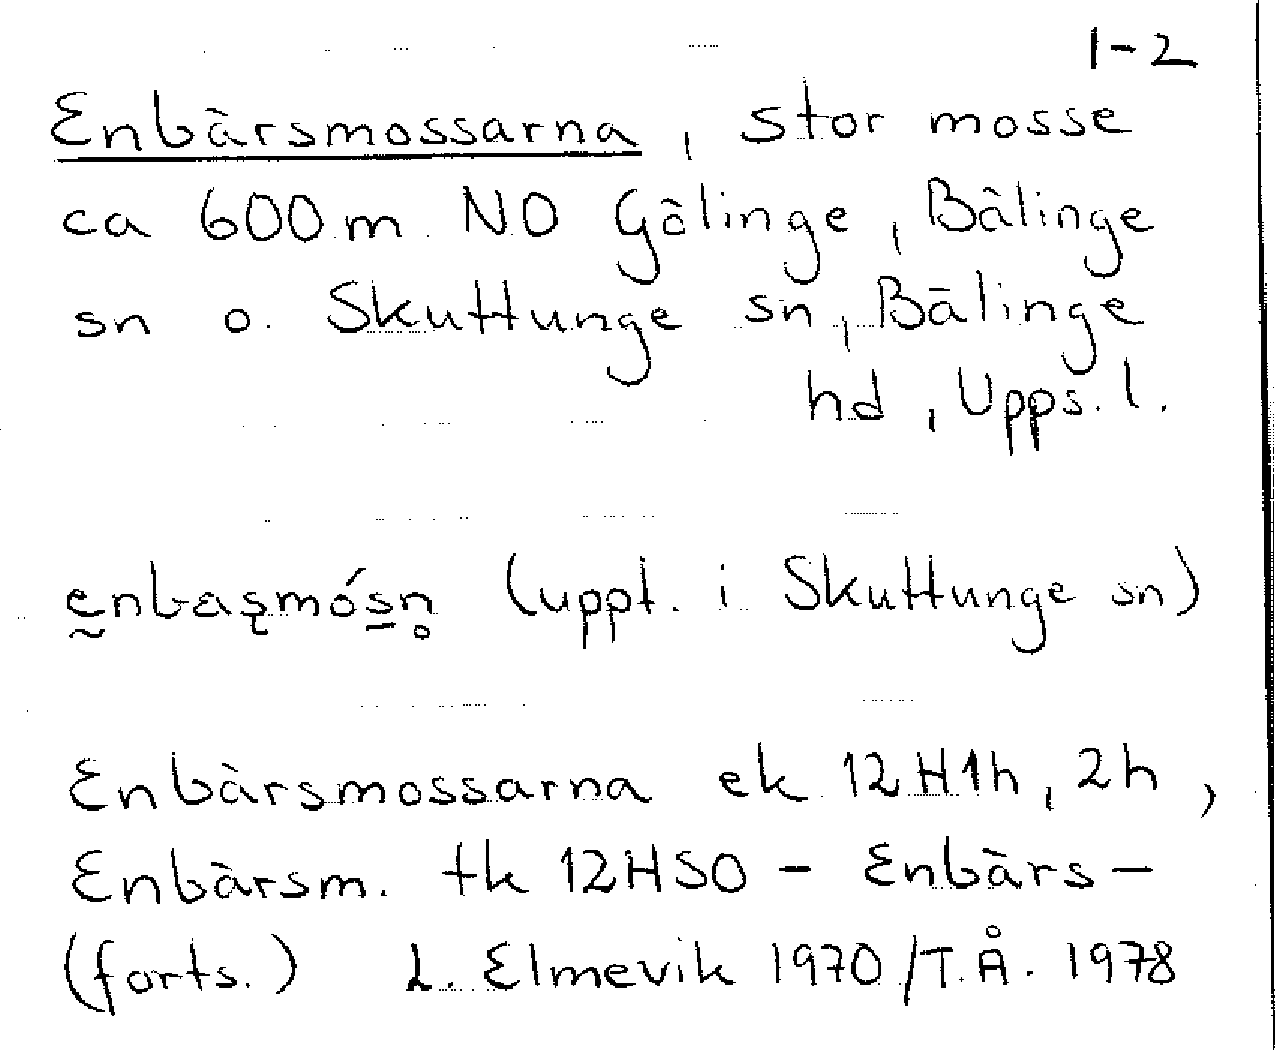 1-2
Enbärsmossarna, stor mosse
ca 600 m NO Gölinge, Bälinge
sn o. Skuttunge sn, Bälinge
hd, Upps. l.
(uppt. i Skuttunge sn)
Enbärsmossarna ek 12H1h, 2h,
Enbärsm. tk 12HSO - Enbärs-
(forts.) L. Elmevik 1970/T.Å. 1978